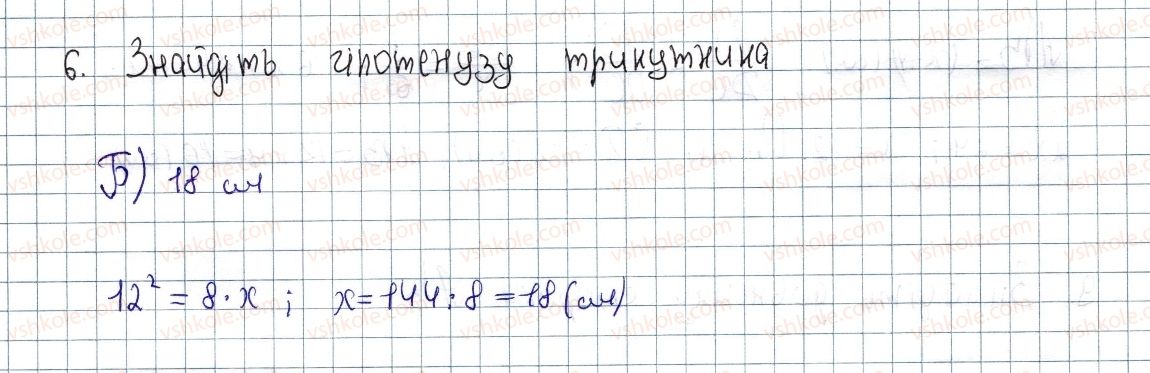 6. Знайдіть гіпотенузу трикутника
Б) 18 см
12² = 8 · x ; x = 144 : 8 = 18 (см)